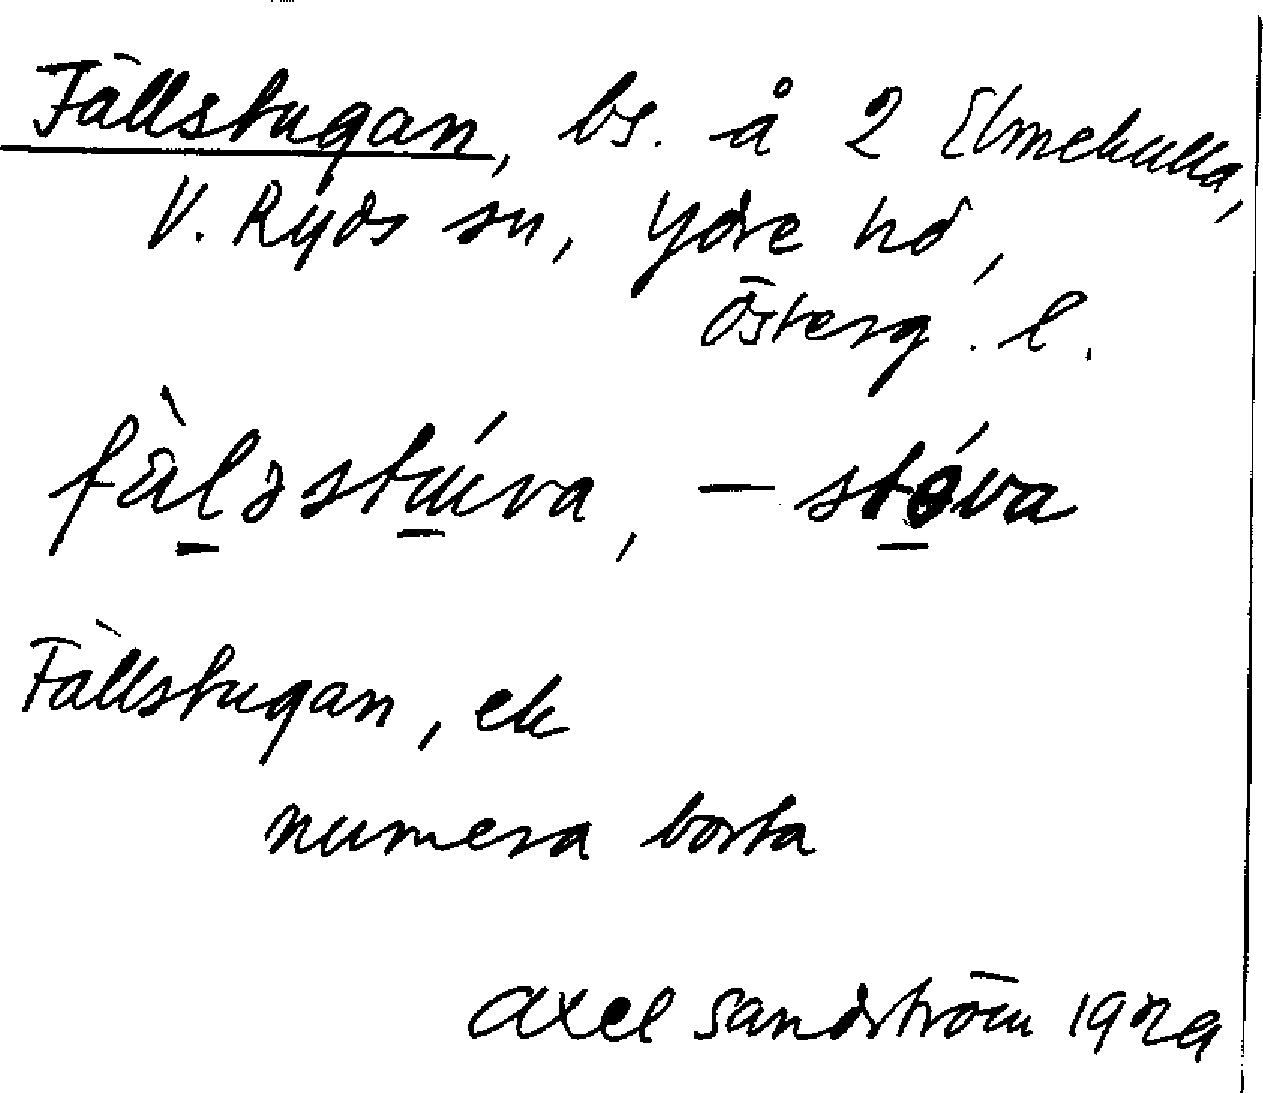 Fällstugan, bs. å 2 Elmekulla,
V. Ryds sn, Ydre hd,
Österg. l.
fä̀lǝstúva, - stóva
Fällstugan, ek
numera borta
Axel Sandström 1929